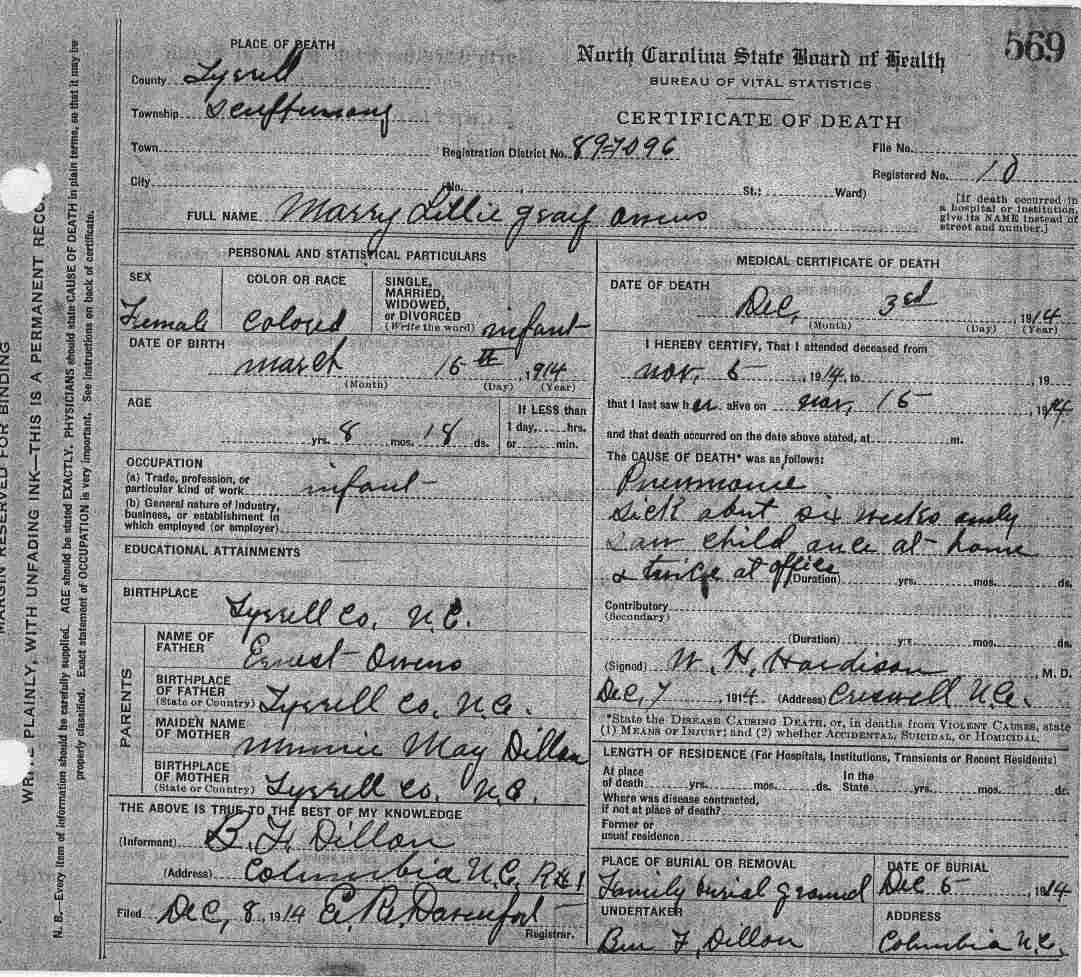 569
PLACE OF DEATH
North Carolina State Board of Health
BUREAU OF VITAL STATISTICS
CERTIFICATE OF DEATH
County Tyrrell
Township
Town
Registration District No. 89-7096
File No.
City
No. St.; Ward)
Registered No. 10
[If death occurred in
a hospital or institution,
give its NAME instead of
street and number.]
FULL NAME Marry Lillie gray owens
PERSONAL AND STATISTICAL PARTICULARS
SEX
Female
COLOR OR RACE
Colored
SINGLE,
MARRIED,
WIDOWED,
or DIVORCED
(Write the word) infant
DATE OF BIRTH
march 16 th, 1914
(Month) (Day) (Year)
AGE
yrs. 8 mos. 18 ds.
If LESS than
1 day, hrs.
or min.
OCCUPATION
(a) Trade, profession, or
particular kind of work infant
(b) General nature of industry,
business, or establishment in
which employed (or employer)
EDUCATIONAL ATTAINMENTS
BIRTHPLACE
Tyrrell Co, N.C.
PARENTS
NAME OF
FATHER
Ernest Owens
BIRTHPLACE
OF FATHER
(State or Country) Tyrrell Co, N.C.
MAIDEN NAME
OF MOTHER
Minnie May Dillon
BIRTHPLACE
OF MOTHER
(State or Country) Tyrrell Co, N.C.
THE ABOVE IS TRUE TO THE BEST OF MY KNOWLEDGE
(Informant) B. F. Dillon
(Address) Columbia N.C. R#1
Filed Dec, 8, 1914 Davenport
Registrar.
MEDICAL CERTIFICATE OF DEATH
DATE OF DEATH
Dec, 3rd 1914
(Month) (Day) (Year)
I HEREBY CERTIFY, That I attended deceased from
nov. 5, 1914, to , 19
that I last saw her alive on nov, 15, 1914
and that death occurred on the date above stated, at m.
The CAUSE OF DEATH* was as follows:
Pneumonie
sick abut six weeks only
saw child once at home
& twice at office
(Duration) yrs. mos. ds.
Contributory
(Secondary)
(Duration) yrs. mos. ds.
(Signed) W. H. Hardison M. D.
Dec, 7, 1914 (Address) Creswell N.C.
*State the DISEASE CAUSING DEATH, or, in deaths from VIOLENT CAUSES, state
(1) MEANS OF INJURY; and (2) whether ACCIDENTAL, SUICIDAL, or HOMICIDAL.
LENGTH OF RESIDENCE (For Hospitals, Institutions, Transients or Recent Residents)
At place
of death yrs. mos. ds. In the
State yrs. mos. ds.
Where was disease contracted,
if not at place of death?
Former or
usual residence
PLACE OF BURIAL OR REMOVAL
Family burial ground
DATE OF BURIAL
Dec 5 1914
UNDERTAKER
Ben F. Dillon
ADDRESS
Columbia N.C.
MARGIN RESERVED FOR BINDING
WRITE PLAINLY, WITH UNFADING INK—THIS IS A PERMANENT RECO
N. B.—Every item of information should be carefully supplied. AGE should be stated EXACTLY. PHYSICIANS should state CAUSE OF DEATH in plain terms, so that it may be
properly classified. Exact statement of OCCUPATION is very important. See instructions on back of certificate.